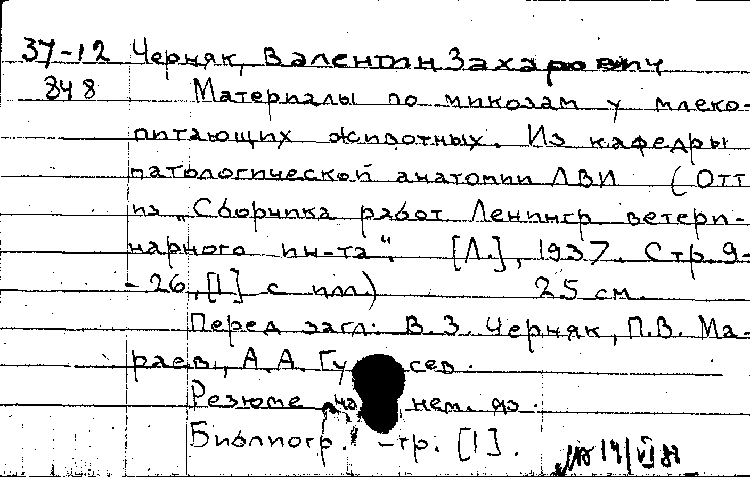 37-12 Черняк, Валентин Захарович
848 Материалы по микозам у млеко-
питающих животных. Из кафедры
патологической анатомии ЛВИ (Отт
из „Сборника работ Ленингр. ветери-
нарного ин-та“. [Л.], 1937. Стр. 9-
-26, [1] с илл.) 25 см.
Перед загл: В.З. Черняк, П.В. Ма-
раев, А.А. Гу сев.
Резюме на нем. яз.
Библиогр. -тр. [1].